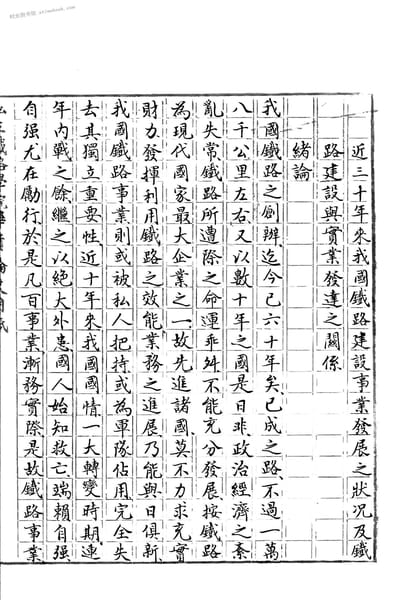 近三十年來我國鐵路建設事業發展之狀况及鐵
路建設與實業發達之關係
緒論
我國鐵路之創辦迄今已六十年矣已成之路不過一萬
八千公里左右又以數十年之國是日非政治經濟之紊
亂失常鐵路所遭際之命運乖舛不能充分發展按鐵路
為現代國家最大企業之一故先進諸國莫不力求充實
財力發揮利用鐵路之效能業務之進展乃能與日俱新
我國鐵路事業則或被私人把持或為軍隊佔用完全失
去其獨立重要性近十年來我國國情一大轉變時期連
年內戰之餘繼之以絕大外患國人始知救亡端賴自强
自强尤在勵行於是凡百事業漸務實際是故鐵路事業